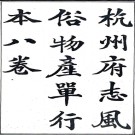 杭州府志風
俗物產單行
本八卷